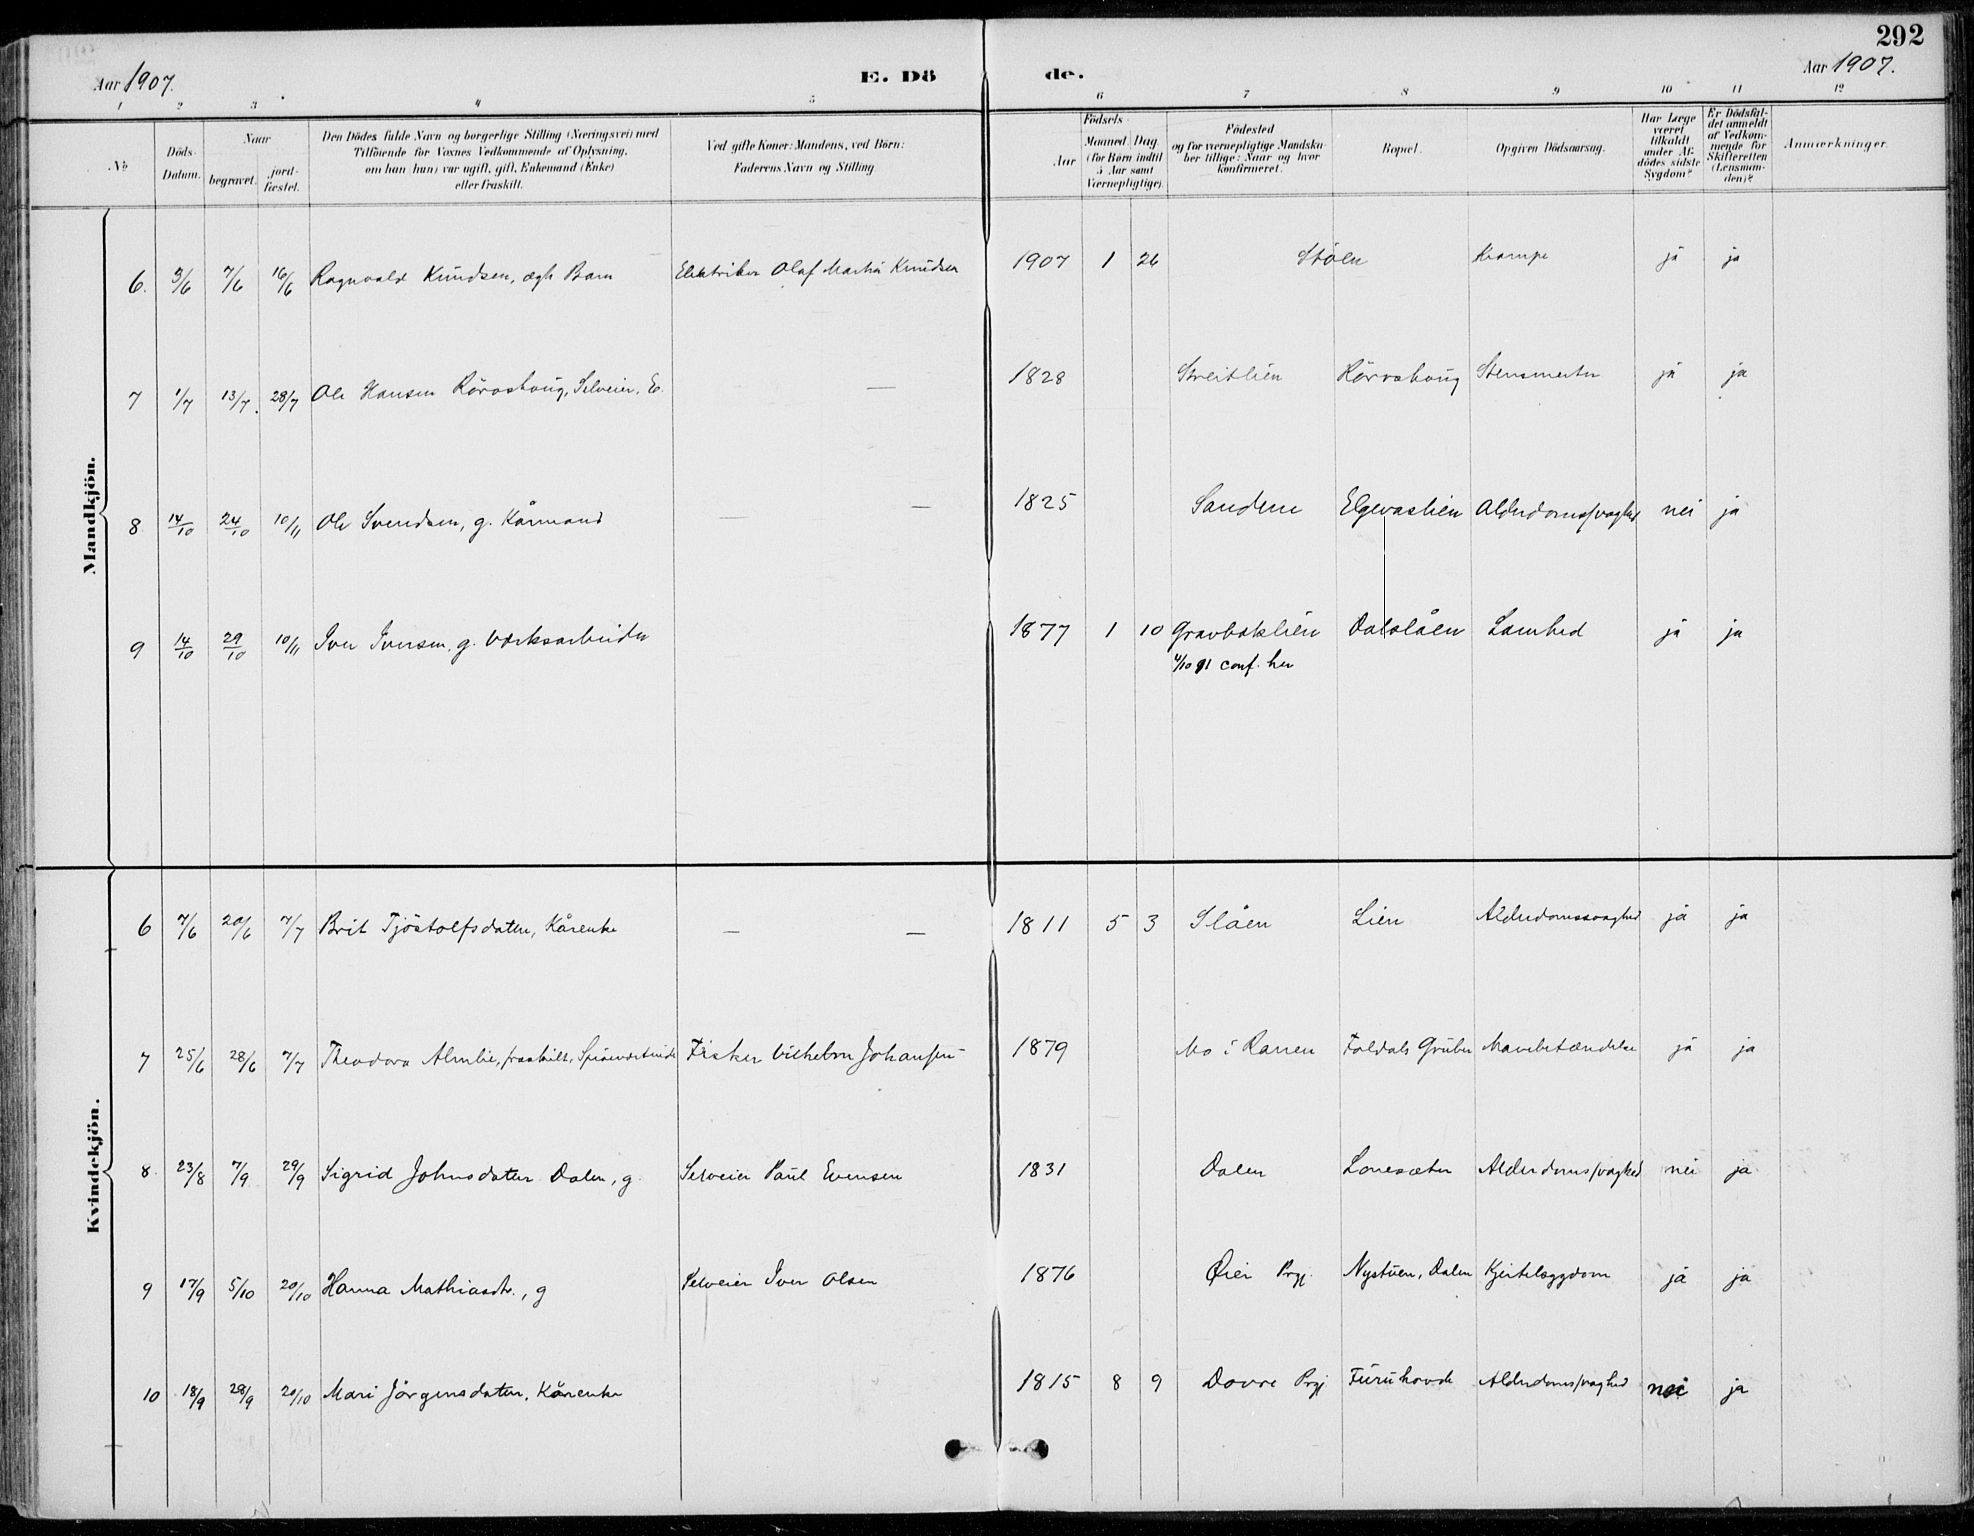 292
Aar 1907. E. Dö de. Aar 1907.
1 2 3 4 5 6 7 8 9 10 11 12
No
Döds-Datum.
Naar
begravet.
jord-fæstet.
Den Dödes fulde Navn og borgerlige Stilling (Næringsvei) med
Tilföiende for Voxnes Vedkommende af Oplysning,
om han (hun) var ugift, gift, Enkemand (Enke)
eller fraskilt.
Ved gifte Koner: Mandens, ved Börn:
Faderens Navn og Stilling
Födsels
Aar
Maaned. Dag.
(for Børn indtil
5 Aar samt
Værnepligtige).
Födested
og for værnepligtige Mandska-
ber tillige: Naar og hvor
konfirmeret.
Bopæl.
Opgiven Dödsaarsag.
Har Læge
været
tilkaldt
under Af-
dödes sidste
Sygdom?
Er Dödsfal-
det anmeldt
af Vedkom-
mende for
Skifteretten
(Lensman-
den)?
Anmærkninger.
Mandkjön.
6. 3/6 7/6 16/6 Ragnvald Knudsen, ægt Barn Elektriker Olaf Martin Knudsen 1907 1 26 Stölen Krampe ja ja
7 1/7 13/7. 28/7 Ole Hansen Rörvshoug, Selveier, E. — 1828 Streitlien Rörvshoug Stensmerter ja ja
8 14/10 24/10 10/11 Ole Svendsen, g. Kårmand — — 1825 Sandene Elgevaslien Alderdomssvaghed nei ja
9 14/10 29/10 10/11 Iver Iversen, g. Værksarbeider 1877 1 10 Gravbæklien Dalslåen Lamhed ja ja
4/10 91 conf. her
Kvindekjön.
6 7/6 20/6 7/7 Brit Tjöstolfsdatter, Kårenke — — 1811 5 3 Slåen Lien Alderdomssvaghed ja ja
7 25/6 28/6 7/7 Theodora Almlie, fraskilt, Spiseværtinde Fisker Vilhelm Johansen 1879 Mo i Ranen Foldals Gruber Mavebetændelse ja ja
8. 23/8 7/9 29/9 Sigrid Johnsdatter Dalen, g. Selveier Paul Evensen 1831 Dalen Lonesæter Alderdomssvaghed nei ja
9 17/9 5/10 20/10 Hanna Mathiasdtr., g Selveier Iver Olsen 1876 Öier Prgj. Nystuen, Dalen Kjertelsygdom ja ja
10 18/9 28/9 20/10 Mari Jörgensdatter, Kårenke 1815 8 9 Dovre Prgj Furuhovde Alderdomssvaghed nei ja